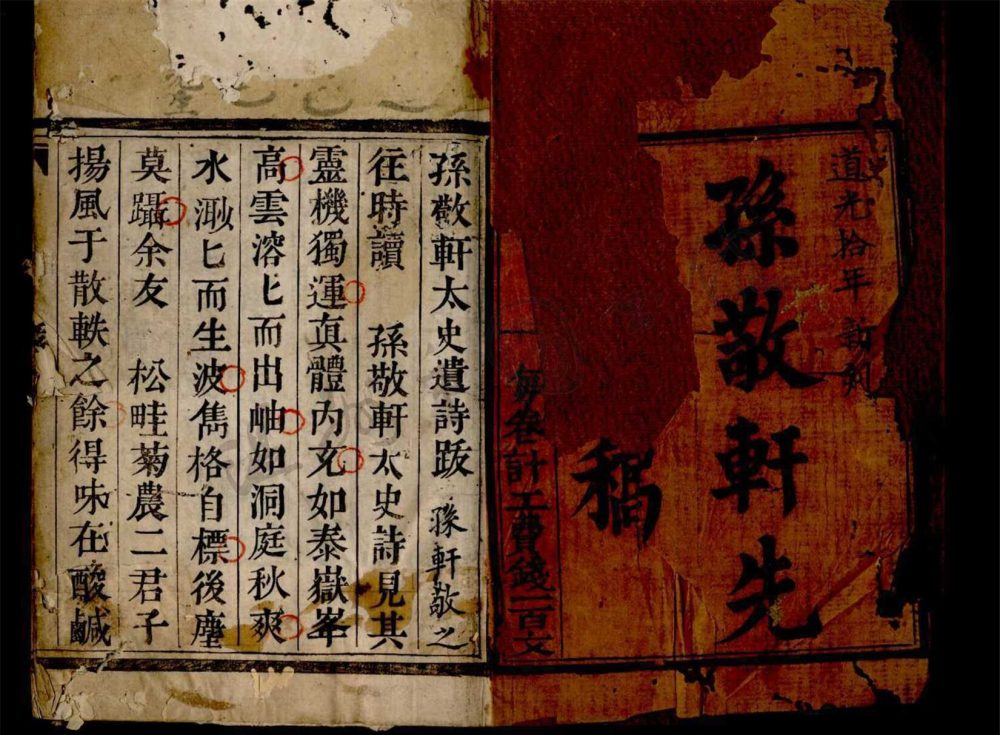 道光拾年 新刻
孫敬軒先
稿
每卷計工費錢二百文
孫敬軒太史遺詩跋 孫軒敬之
往時讀 孫敬軒太史詩見其
靈機獨運真體內充如泰嶽峯
高雲溶匕而出岫如洞庭秋爽
水渺匕而生波雋格自標後塵
莫躡余友 松畦菊農二君子
揚風于散軼之餘得味在酸鹹